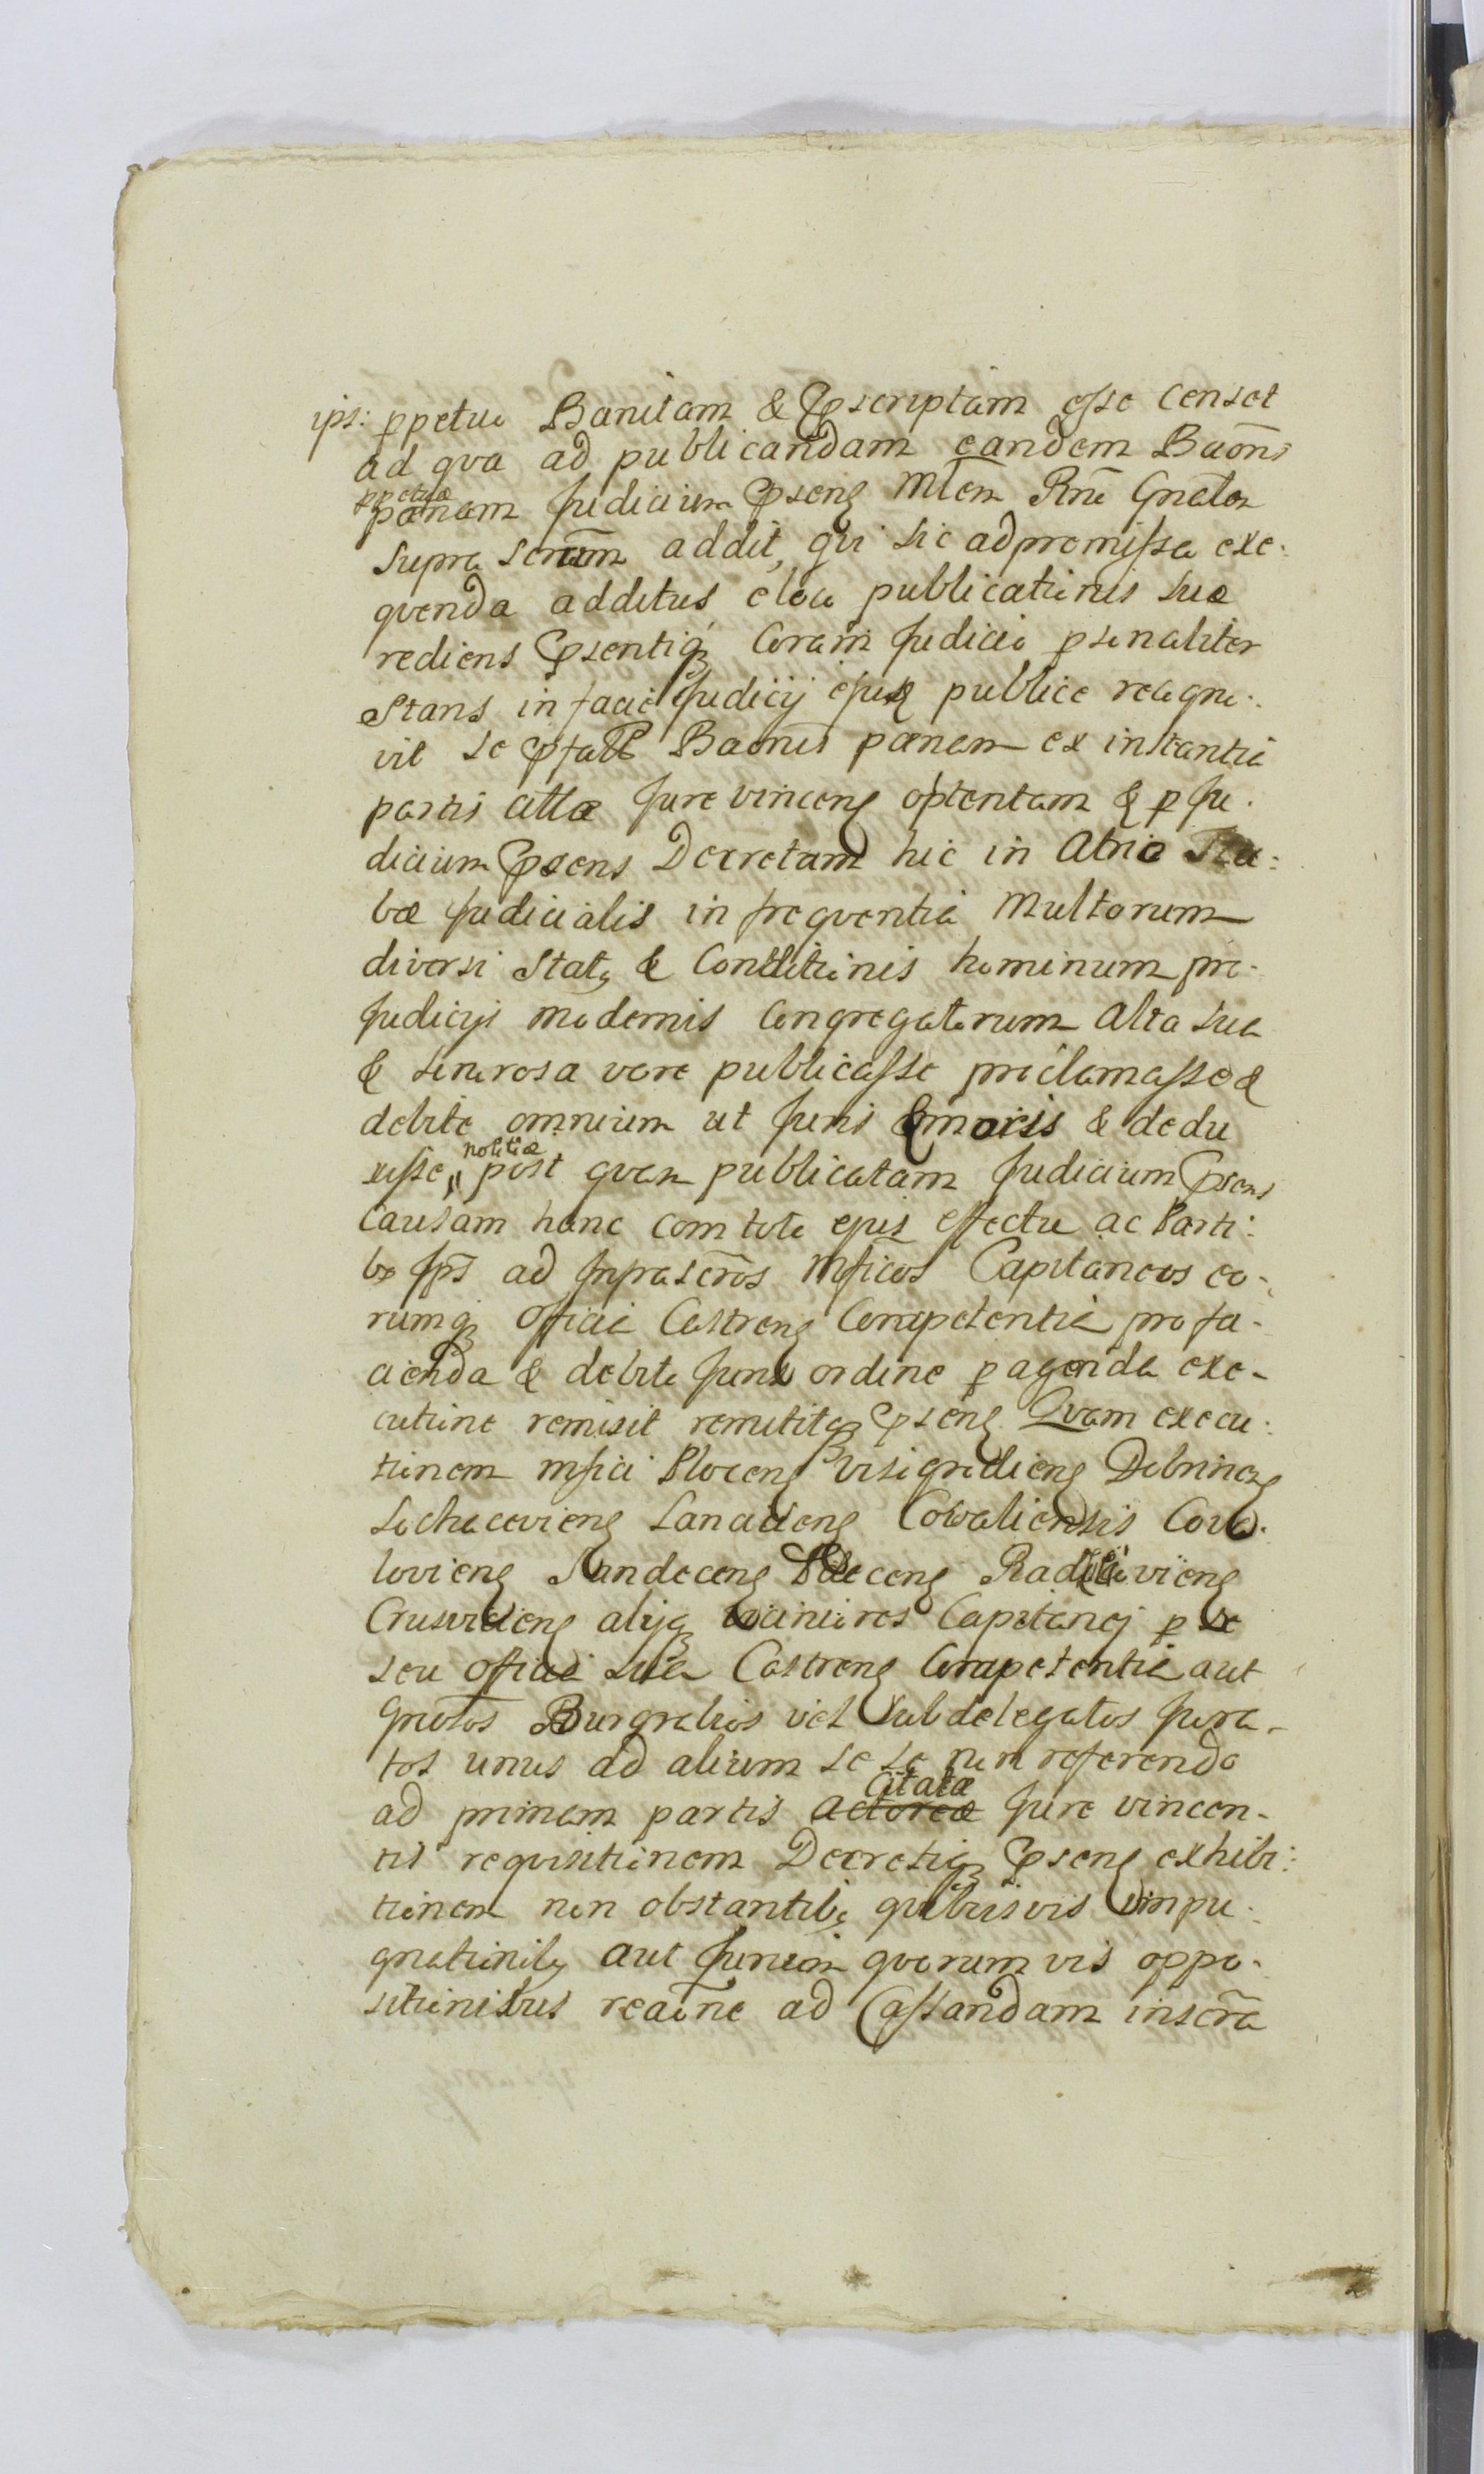 ips: ppetuo Banitam & Pscriptam esse Censet
ad qva ad publicandam eandem Baōnis
ppetuæ
pænam Judicium Psens Mlem Rnē Gnālem
Supra Scrūm addit, qvi sic ad premissa exe:
qvenda additus, e loco publicationis suæ
rediens Psentiq, Coram Judicio psonaliter
Stans in facie Judicij ejusd publice recogno:
vit se Pfatæ Baōnis pænam ex instantia
partis cittæ Jure vincens optentam & p Ju:
dicium Psens Decretam hic in Atrio Stu:
bæ Judicialis in freqventia Multorum
diversi Stats & Conditionis hominum pro
Judicijs modernis Congregatorum Alta sua
& sonorosa voce publicasse proclamasse &
debite omnium ut Juris & moris & dedu
notitiæ
xisse, post qvam publicatam Judicium Psens
Causam hanc com toto ejus effectu ac Parti:
bs Jps ad Jnfrascrōs Mficos Capitaneos eo:
rumq Officia Castrens Competentia pro fa:
cienda & debito Juris ordine p agenda exe:
cutione remisit remittitq Psens. Qvam execu:
tionem mfici Plocens Visigrodiens Dobrinens
Sochacoviens Lancicens Cowaliensis Cova:
loviens Sandecens Radziioviens
Crusviciens aliiq viciniores Capitanej p se
seu Officia sua Castrens Competentia aut
Gnōsos Burgrabios vel Subdelegatos Jura:
tos unus ad alium se se non referendo
Citatæ
ad primam partis Actoreæ Jure vincen:
tis reqvisitionem Decretiq Psens exhibi:
tionem non obstantibs qvibusvis impu:
gnationibs aut Jurium qvorumvis oppo:
sitionibus reaōne ad Cassandam inscrā